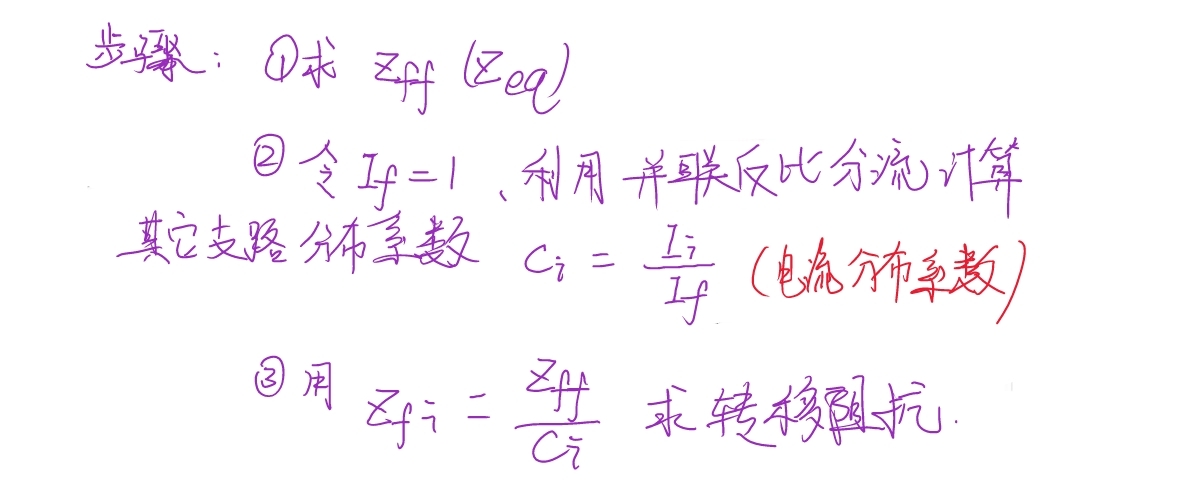 步骤: ①求 Zff (Zeq)
② 令 If = 1、利用并联反比分流计算
其它支路分布系数 Ci = Ii / If (电流分布系数)
③ 用 Zfi = Zff / Ci 求转移阻抗.